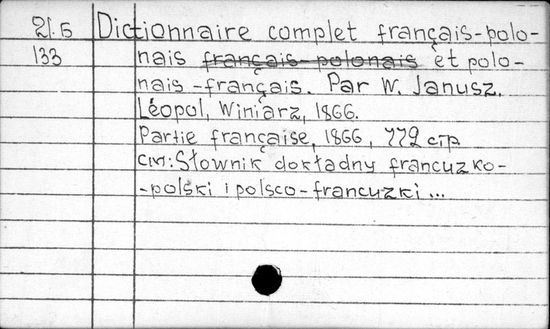 21.Б Dictionnaire complet français-polo-
133 nais ~~français-polonais~~ et polo-
nais-français. Par W. Janusz.
Léopol, Winiarz, 1866.
Partie française, 1866, 772 стр
см: Słownik dokładny francuzko-
-polski i polsco-francuzki ...